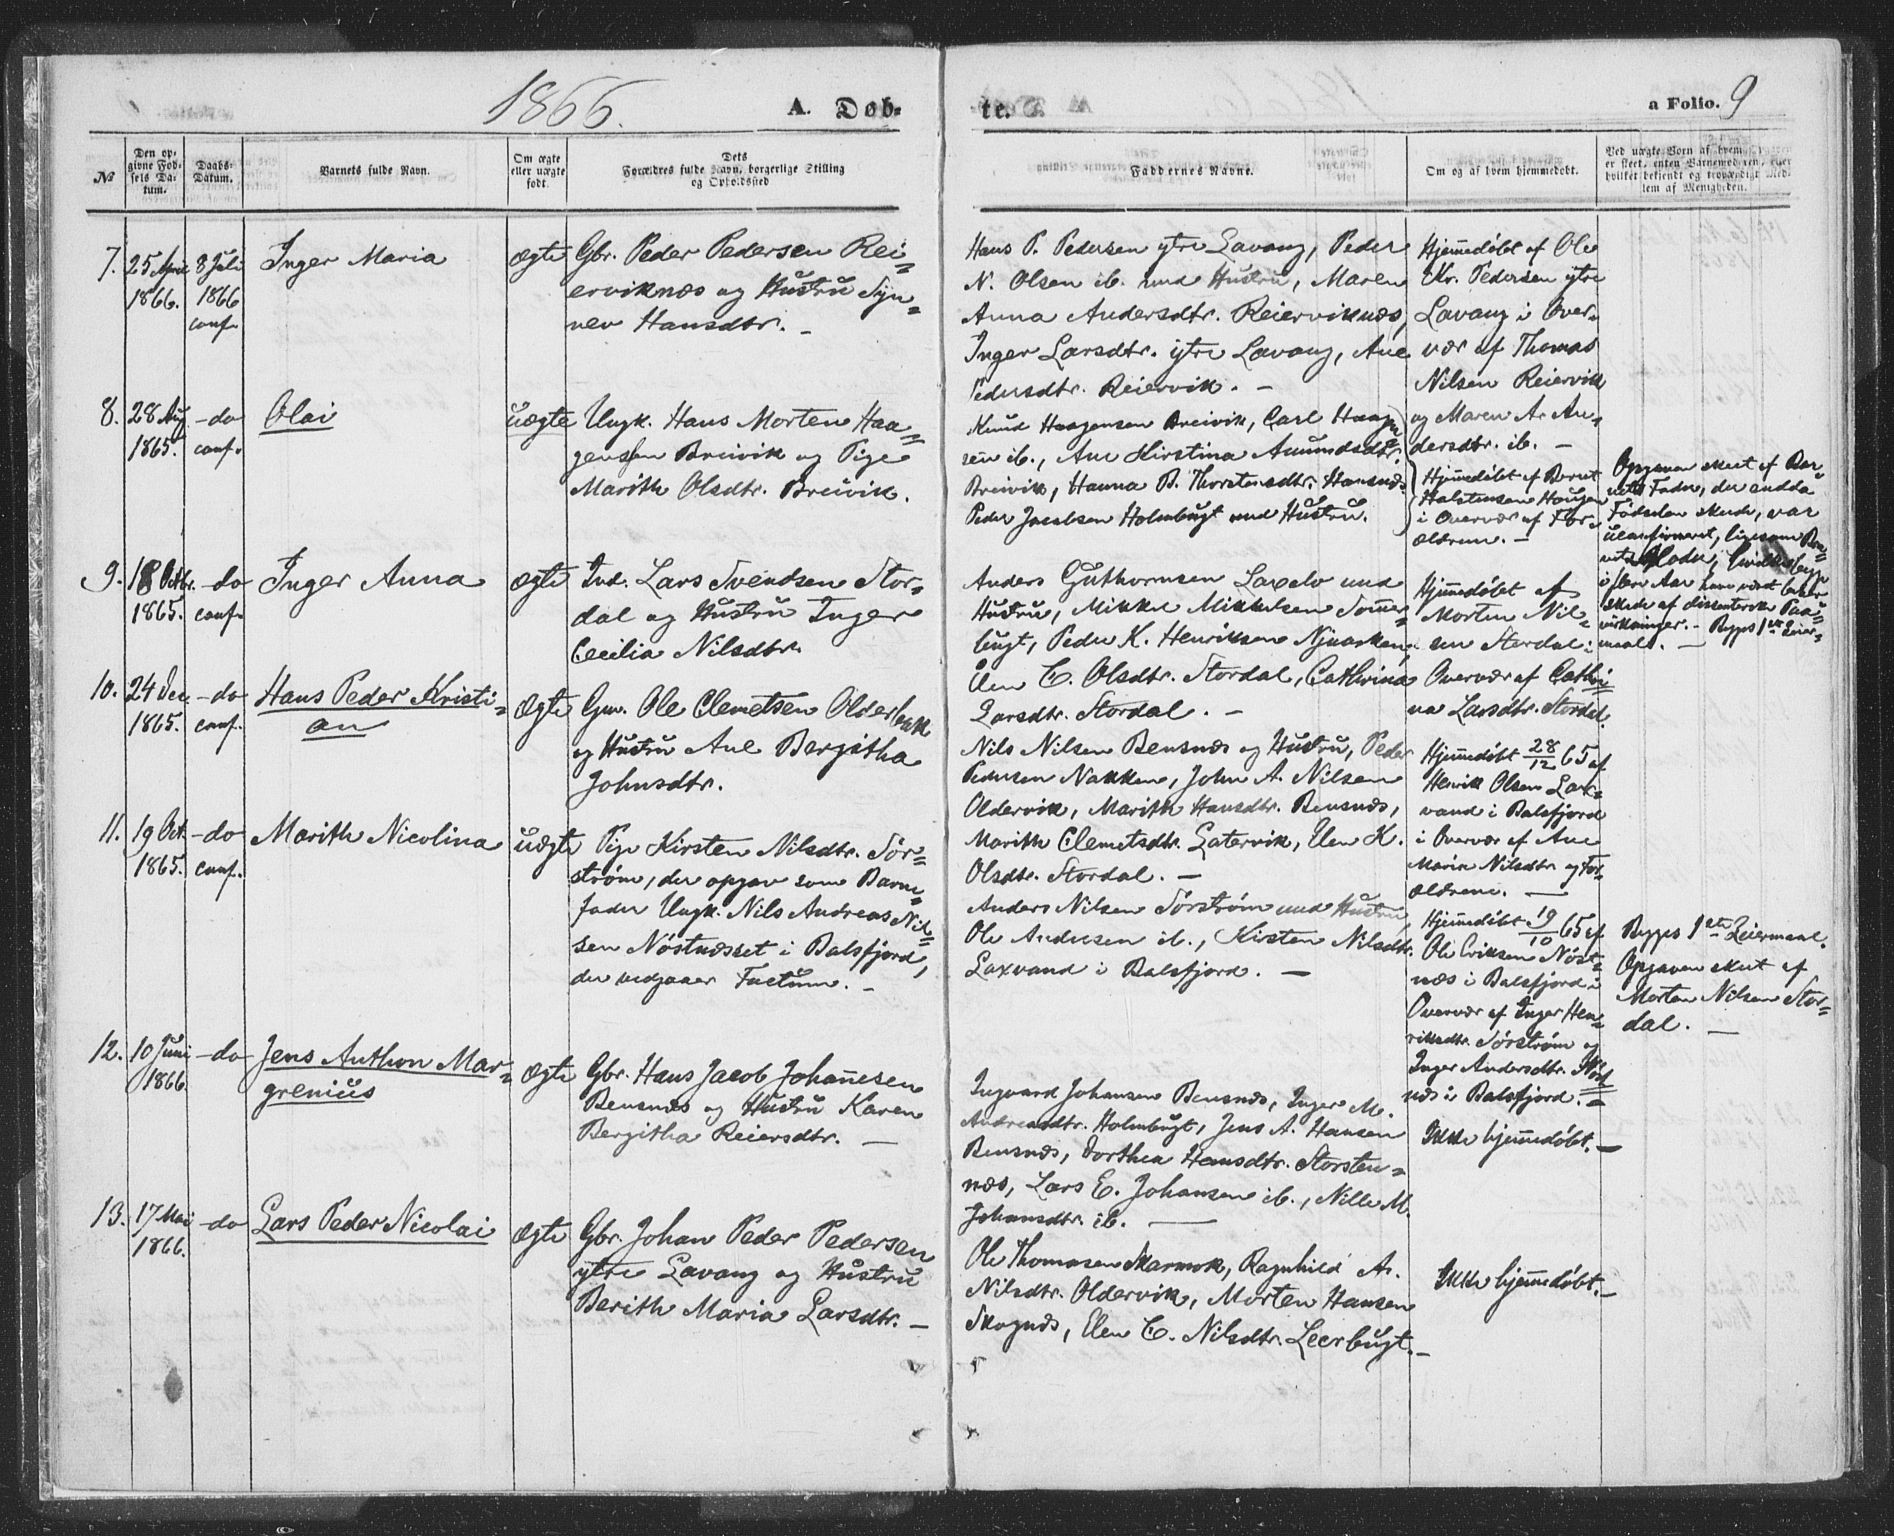 1866.
A. Døb-
te.
a Folio. 9
№
Den op-
givne Fød-
sels Da-
tum.
Daabs-
Datum.
Barnets fulde Navn.
Om ægte
eller uægte
født.
Dets
Forældres fulde Navn, borgerlige Stilling
og Opholdssted
Faddernes Navne.
Om og af hvem hjemmedøbt.
Ved uægte Børn af hvem
er skeet, enten Barnemoderen, eller
hvilket bekjendt og troværdigt Med-
lem af Menigheden.
7.
25 April
1866.
8 Juli
1866
conf.
Inger Maria
ægte
Gbr. Peder Pedersen Rei=
erviknæs og Hustru Syn=
nev Hansdtr. –
Hans P. Pedersen ytre Lavang, Peder
N. Olsen ib. med Hustru, Maren
Anna Andersdtr. Reierviknæs,
Inger Larsdtr. ytre Lavang, Ane
Pedersdtr. Reiervik. –
Hjemmedøbt af Ole
Kr. Pedersen ytre
Lavang i Over-
vær af Thomas
Nilsen Reiervik
og Maren A. An=
dersdtr. ib. –
8.
28 Aug
1865.
-do
conf.
Olai
uægte
Ungk. Hans Morten Haa=
gensen Breivik og Pige
Marith Olsdtr. Breivik.
Knud Haagensen Breivik, Carl Haagen
sen ib., Ane Kirstina Amundsdtr.
Breivik, Hanna B. Thorstensdtr. Hansnæs
Peder Jacobsen Holmbugt med Hustru.
Hjemmedøbt af Bernt
Halstensen Haugen
i Overvær af For-
ældrene. –
Opgaven skeet af Bar=
nets Fader, der endda
Fødselen skede, var
uconfirmeret, ligesom Bar=
nets Moder,
i flere Aar
skede af dissenterske Paa=
virkninger. – Begges 1ste Leier=
maal. –
9.
18 Octbr.
1865.
-do
conf.
Inger Anna
ægte
Ind. Lars Svendsen Stor=
dal og Hustru Inger
Cecilia Nilsdtr.
Anders Guthormsen Laxelv med
Hustru, Mikkel Mikkelsen Sommer=
bugt, Peder K. Henriksen Njaarken,
Elen C. Olsdtr. Stordal, Cathrina
Larsdtr. Stordal. –
Hjemmedøbt af
Morten Nil=
sen Stordal i
Overvær af Cathri
na Larsdtr. Stordal.
10.
24 Dec
1865.
-do
conf.
Hans Peder Kristi=
an
ægte
Gm. Ole Clemetsen Olderbakk
og Hustru Ane Bergitha
Johnsdtr.
Nils Nilsen Bensnæs og Hustru, Peder
Pedersen Nakken, John A. Nilsen
Oldervik, Marith Hansdtr. Bensnæs,
Marith Clemetsdtr. Satervik, Elen K.
Olsdtr. Stordal. –
Hjemmedøbt 28/12 65 af
Henrik Olsen Lax=
vand i Balsfjord
i Overvær af Ane
Maria Nilsdtr og For=
ældrene. –
11.
19 Oct.
1865.
-do
conf.
Marith Nicolina
uægte
Pige Kirsten Nilsdtr. Sør=
strøm, der opgav som Barne=
fader Ungk. Nils Andreas Nil=
sen Nøstnæsset i Balsfjord,
der vedgaaer Factum. –
Anders Nilsen Sørstrøm med Hustru,
Ole Andresen ib., Kirsten Nilsdtr.
Laxvand i Balsfjord. –
Hjemmedøbt 19/10 65 af
Ole Eriksen Nøst=
næs i Balsfjord i
Overvær af Inger Hen=
riksdtr. Sørstrøm og
Inger Andersdtr. Nøst
næs i Balsfjord. –
Begges 1ste Leiermaal.
Opgaven skeet af
Morten Nilsen Stor=
dal. –
12.
10 Juni
1866.
-do
Jens Anthon Mar=
grenius
ægte
Gbr. Hans Jacob Johannesen
Bensnæs og Hustru Karen
Bergitha Reiersdtr. –
Ingvard Johansen Bensnæs, Inger M.
Andreasdtr. Holmbugt, Jens A. Hansen
Bensnæs, Dorthea Hansdtr. Storsten=
næs, Lars E. Johansen ib., Nille M.
Johansdtr. ib. –
Ikke hjemmedøbt. –
13.
17 Mai
1866.
-do
Lars Peder Nicolai
ægte
Gbr. Johan Peder Pedersen
ytre Lavang og Hustru
Berith Maria Larsdtr. –
Ole Thomasen Skarmok, Ragnhild A.
Nilsdtr. Oldervik, Morten Hansen
Skognæs, Elen C. Nilsdtr. Leerbugt. –
Ikke hjemmedøbt. –